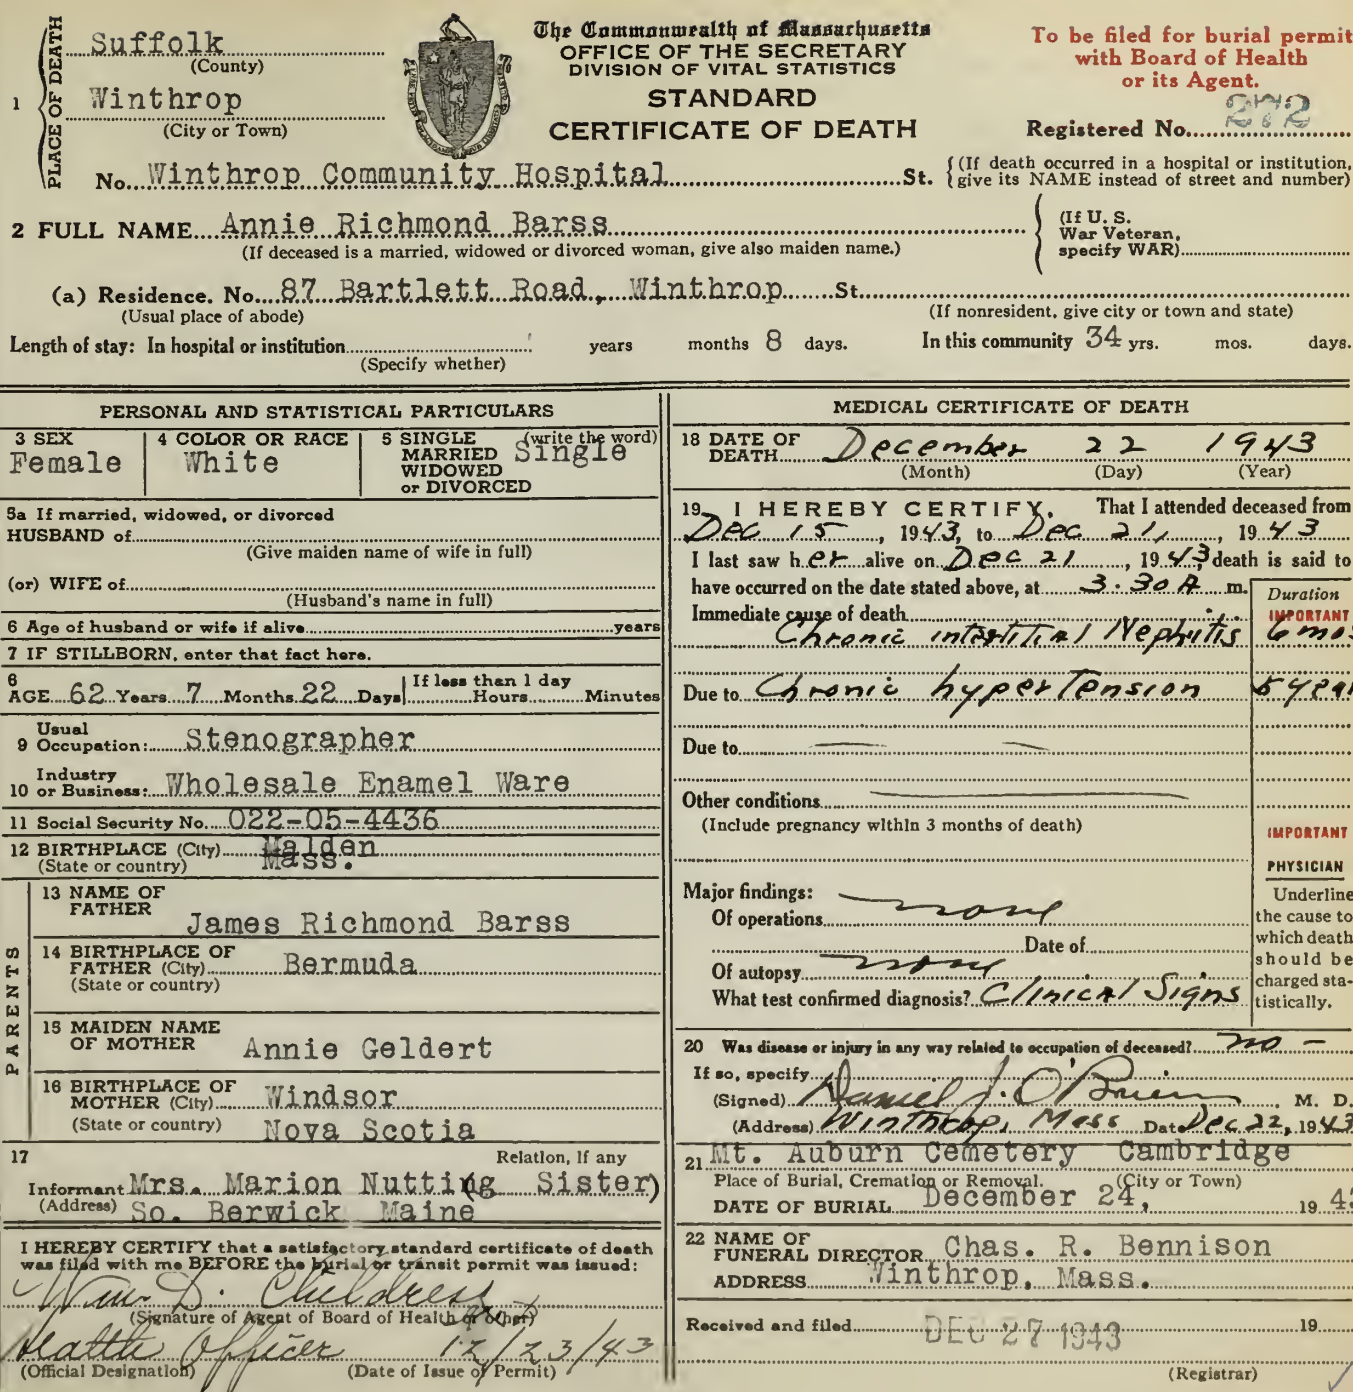 PLACE OF DEATH
1
Suffolk
(County)
Winthrop
(City or Town)
No. Winthrop Community Hospital St.
{(If death occurred in a hospital or institution,
give its NAME instead of street and number)
The Commonwealth of Massachusetts
OFFICE OF THE SECRETARY
DIVISION OF VITAL STATISTICS
STANDARD
CERTIFICATE OF DEATH
To be filed for burial permit
with Board of Health
or its Agent.
Registered No. 272
2 FULL NAME Annie Richmond Barss
(If deceased is a married, widowed or divorced woman, give also maiden name.)
(If U. S.
War Veteran,
specify WAR)
(a) Residence. No. 87 Bartlett Road, Winthrop St.
(Usual place of abode)
(If nonresident, give city or town and state)
Length of stay: In hospital or institution years months 8 days. In this community 34 yrs. mos. days.
(Specify whether)
PERSONAL AND STATISTICAL PARTICULARS
3 SEX
Female
4 COLOR OR RACE
White
5 SINGLE (write the word)
MARRIED Single
WIDOWED
or DIVORCED
5a If married, widowed, or divorced
HUSBAND of
(Give maiden name of wife in full)
(or) WIFE of
(Husband's name in full)
6 Age of husband or wife if alive years
7 IF STILLBORN, enter that fact here.
8
AGE 62 Years 7 Months 22 Days
If less than 1 day
Hours Minutes
9 Usual
Occupation: Stenographer
10 Industry
or Business: Wholesale Enamel Ware
11 Social Security No. 022-05-4436
12 BIRTHPLACE (City) Malden
(State or country) Mass.
PARENTS
13 NAME OF
FATHER
James Richmond Barss
14 BIRTHPLACE OF
FATHER (City) Bermuda
(State or country)
15 MAIDEN NAME
OF MOTHER Annie Geldert
16 BIRTHPLACE OF
MOTHER (City) Windsor
(State or country) Nova Scotia
17 Relation, if any
Informant Mrs. Marion Nutting (Sister)
(Address) So. Berwick Maine
I HEREBY CERTIFY that a satisfactory standard certificate of death
was filed with me BEFORE the burial or transit permit was issued:
Wm. D. Childress
(Signature of Agent of Board of Health or other)
Health Officer 12/23/43
(Official Designation) (Date of Issue of Permit)
MEDICAL CERTIFICATE OF DEATH
18 DATE OF
DEATH December 22 1943
(Month) (Day) (Year)
19 I HEREBY CERTIFY, That I attended deceased from
Dec 15, 1943, to Dec 21, 1943
I last saw her alive on Dec 21, 1943, death is said to
have occurred on the date stated above, at 3.30 A m.
Immediate cause of death
Chronic interstitial Nephritis 6 mos
Duration
IMPORTANT
Due to Chronic hypertension 5 year
Due to
Other conditions
(Include pregnancy within 3 months of death)
IMPORTANT
PHYSICIAN
Underline
the cause to
which death
should be
charged sta-
tistically.
Major findings:
Of operations none
Date of
Of autopsy none
What test confirmed diagnosis? Clinical Signs
20 Was disease or injury in any way related to occupation of deceased? no -
If so, specify
(Signed) Daniel J. O'Brien, M. D.
(Address) Winthrop, Mass Date Dec 22, 1943
21 Mt. Auburn Cemetery Cambridge
Place of Burial, Cremation or Removal. (City or Town)
DATE OF BURIAL December 24, 1943
22 NAME OF
FUNERAL DIRECTOR Chas. R. Bennison
ADDRESS Winthrop, Mass.
Received and filed DEC 27 1943 19
(Registrar)